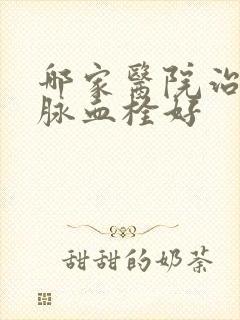 哪家醫院治
脉血栓好
甜甜的奶茶